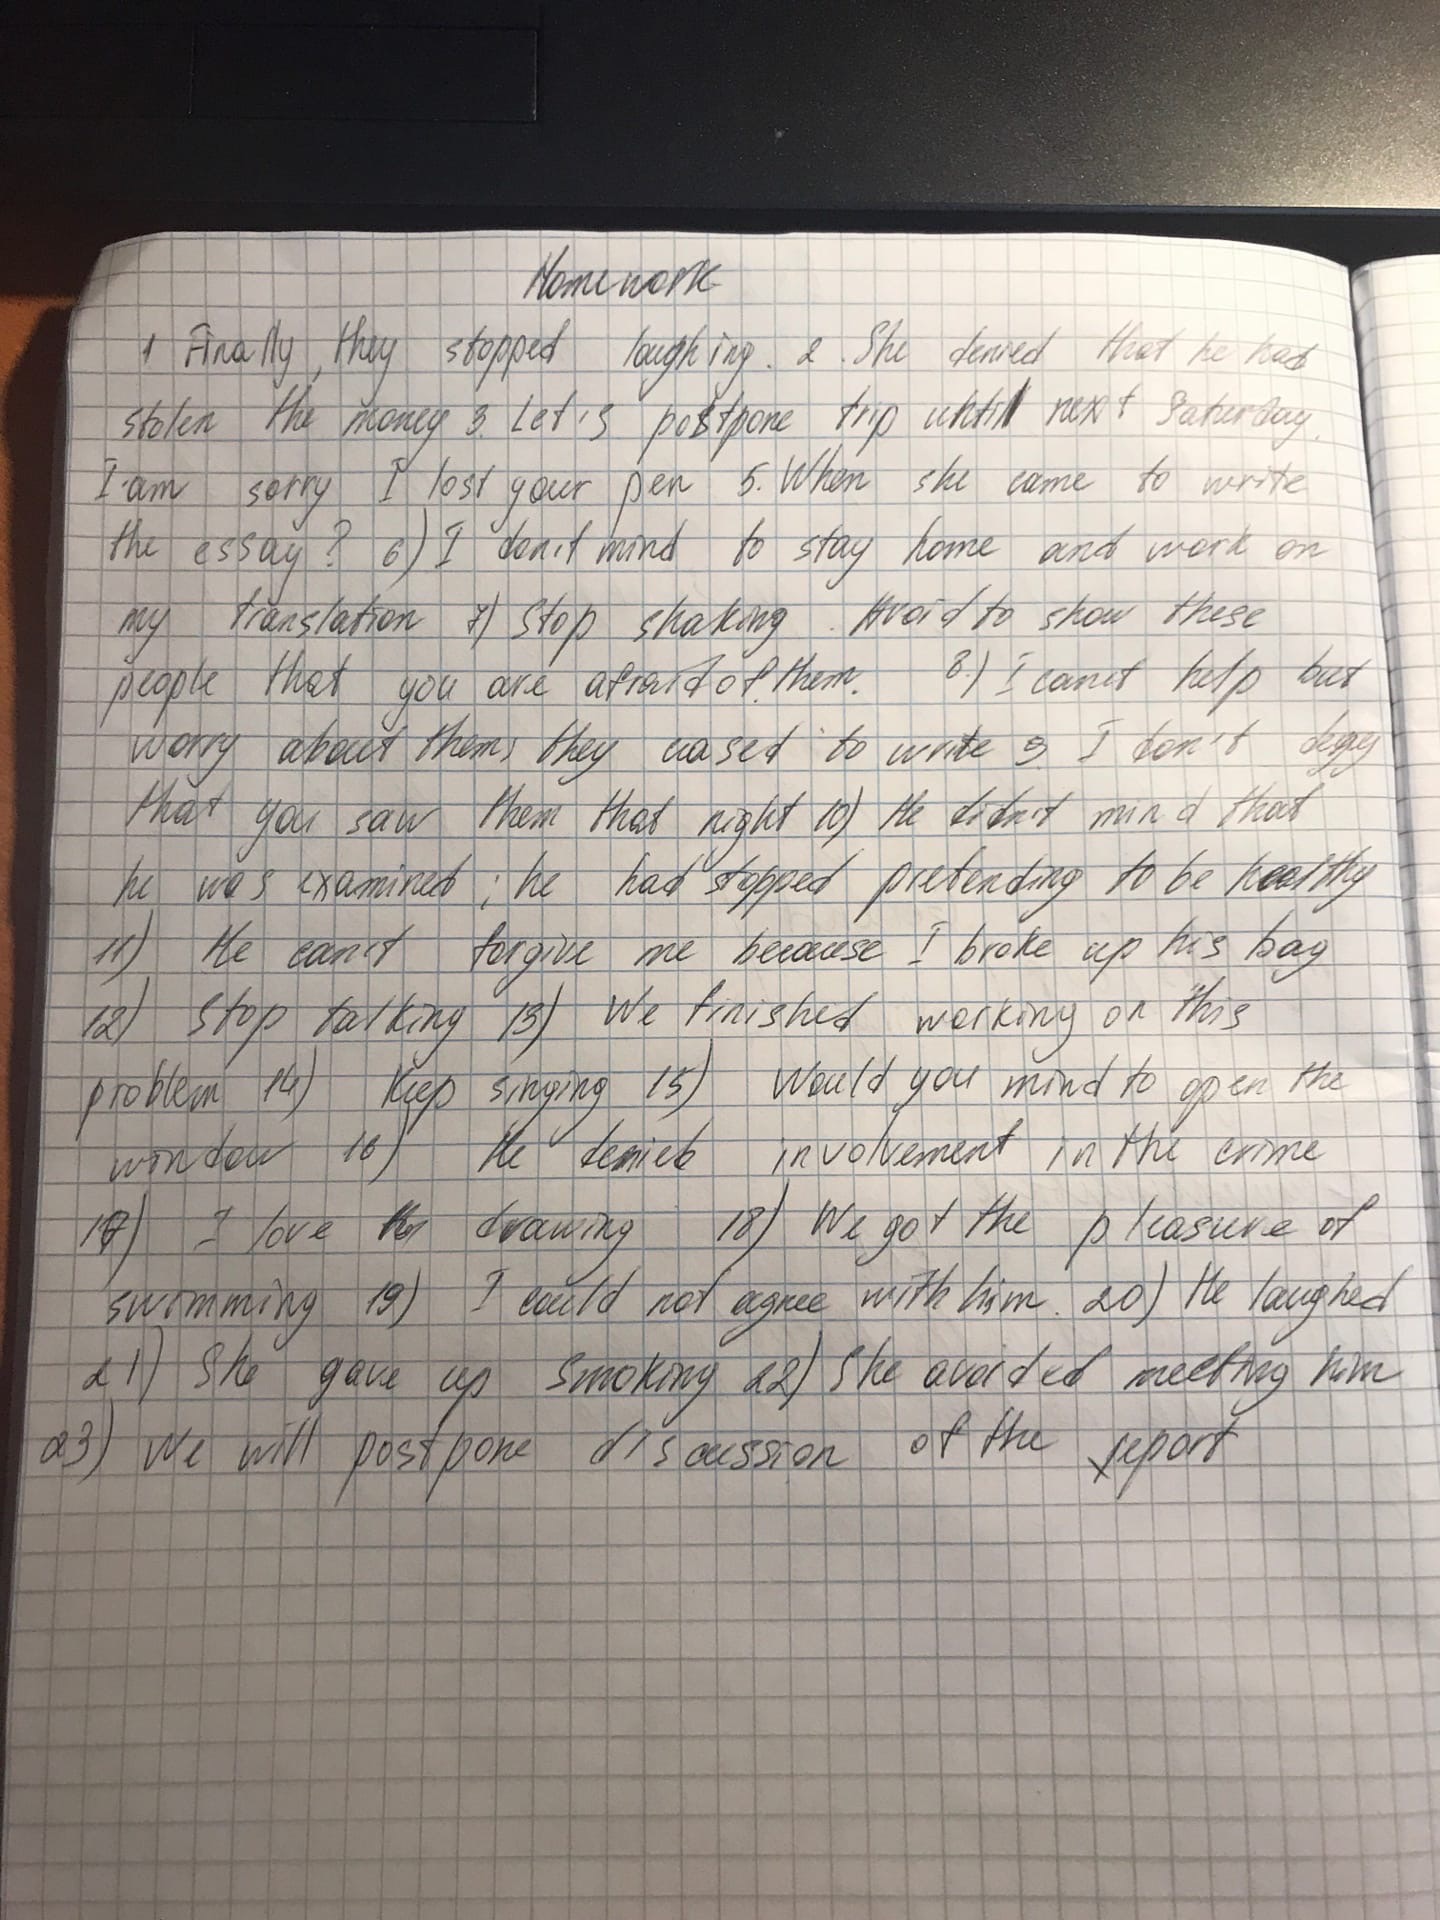 Homework
1 Finally, they stopped laughing. 2. She denied that he had
stolen the money 3. Let's postpone trip until next Saturday.
I am sorry I lost your pen 5. When she came to write
the essay? 6) I don't mind to stay home and work on
my translation 7) Stop shaking. Avoid to show these
people that you are afraid of them. 8.) I can't help but
worry about them, they ceased to write 9. I don't deny
that you saw them that night 10) He didn't mind that
he was examined; he had stopped pretending to be healthy
11) He can't forgive me because I broke up his bag
12) Stop talking 13) We finished working on this
problem 14) Keep singing 15) Would you mind to open the
window 16) He denied involvement in the crime
17) I love drawing 18) We got the pleasure of
swimming 19) I could not agree with him. 20) He laughed
21) She gave up smoking 22) She avoided meeting him
23) We will postpone discussion of the report